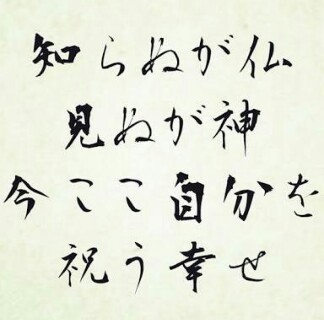 知らぬが仏
見ぬが神
今ここ自分を
祝う幸せ